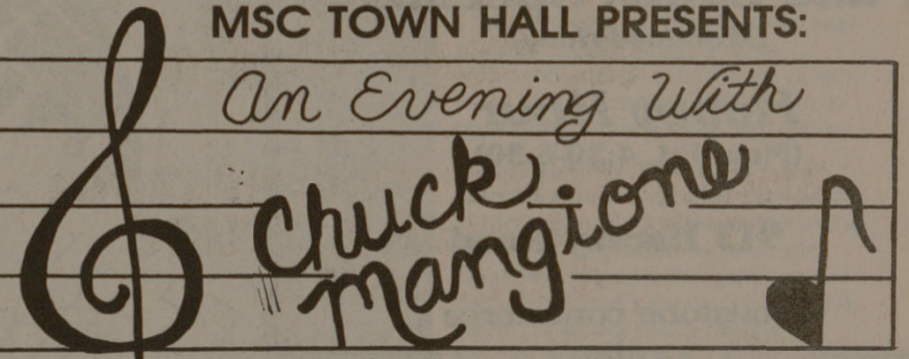 MSC TOWN HALL PRESENTS:
An Evening With
Chuck
Mangione